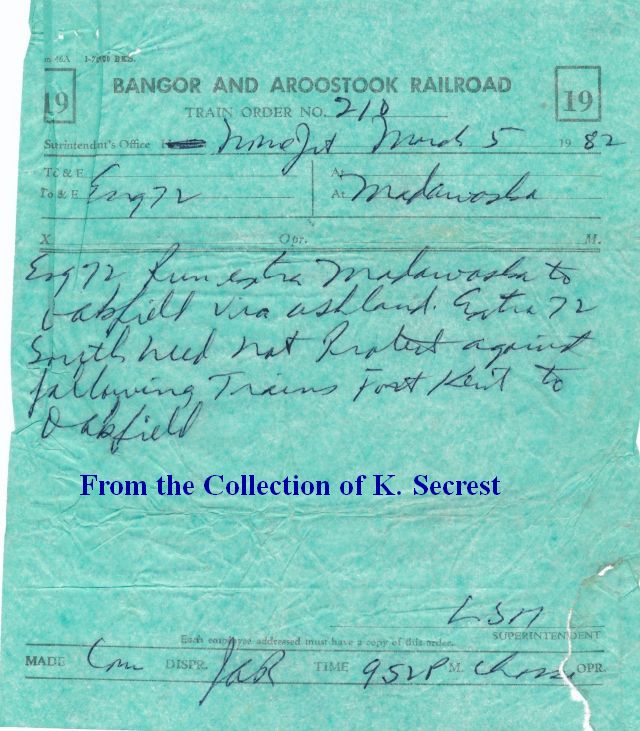 m 46A 1-7500 BKS.
19 BANGOR AND AROOSTOOK RAILROAD 19
TRAIN ORDER NO. 210
Surintendent's Office Nme Jct March 5 1982
To C & E At
To & E Eng 72 At Madawaska
X Opr. M.
Eng 72 Run extra Madawaska to
Oakfield via ashland. Extra 72
South need not Protect against
following Trains Fort Kent to
Oakfield
From the Collection of K. Secrest
LSM
SUPERINTENDENT
Each employee addressed must have a copy of this order.
MADE Com DISPR. JAR TIME 952P M. OPR.